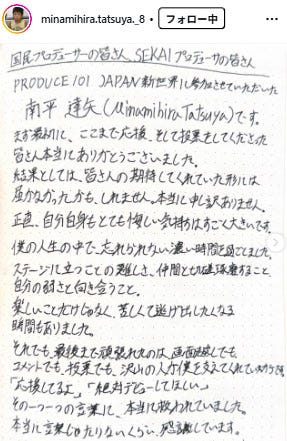 minamihira.tatsuya_8
フォロー中
国民プロデューサーの皆さん、SEKAIプロデューサーの皆さん
PRODUCE 101 JAPAN 新世界に参加させていただいた
南平 達矢(Minamihira Tatsuya)です。
まず最初に、ここまで応援、そして投票をしてくださった
皆さん本当にありがとうございました。
結果としては、皆さんの期待してくれていた形には
届かなかったかも、しれません。本当に申し訳ありません。
正直、自分自身もとても悔しい気持ちはすごく大きいです。
僕の人生の中で、忘れられない濃い時間を過ごしました。
ステージに立つことの難しさ、仲間と切磋琢磨すること、
自分の弱さと向き合うこと。
楽しいことだけじゃなく、苦しくて逃げ出したくなる
時間もありました。
それでも、最後まで頑張れたのは、画面越しでも
コメントでも、投票でも、沢山の人が僕を支えてくれていたからです
「応援してるよ」、「絶対デビューしてほしい」
その一つ一つの言葉に、本当に救われていました。
本当に言葉じゃたりないくらい、感謝しています。